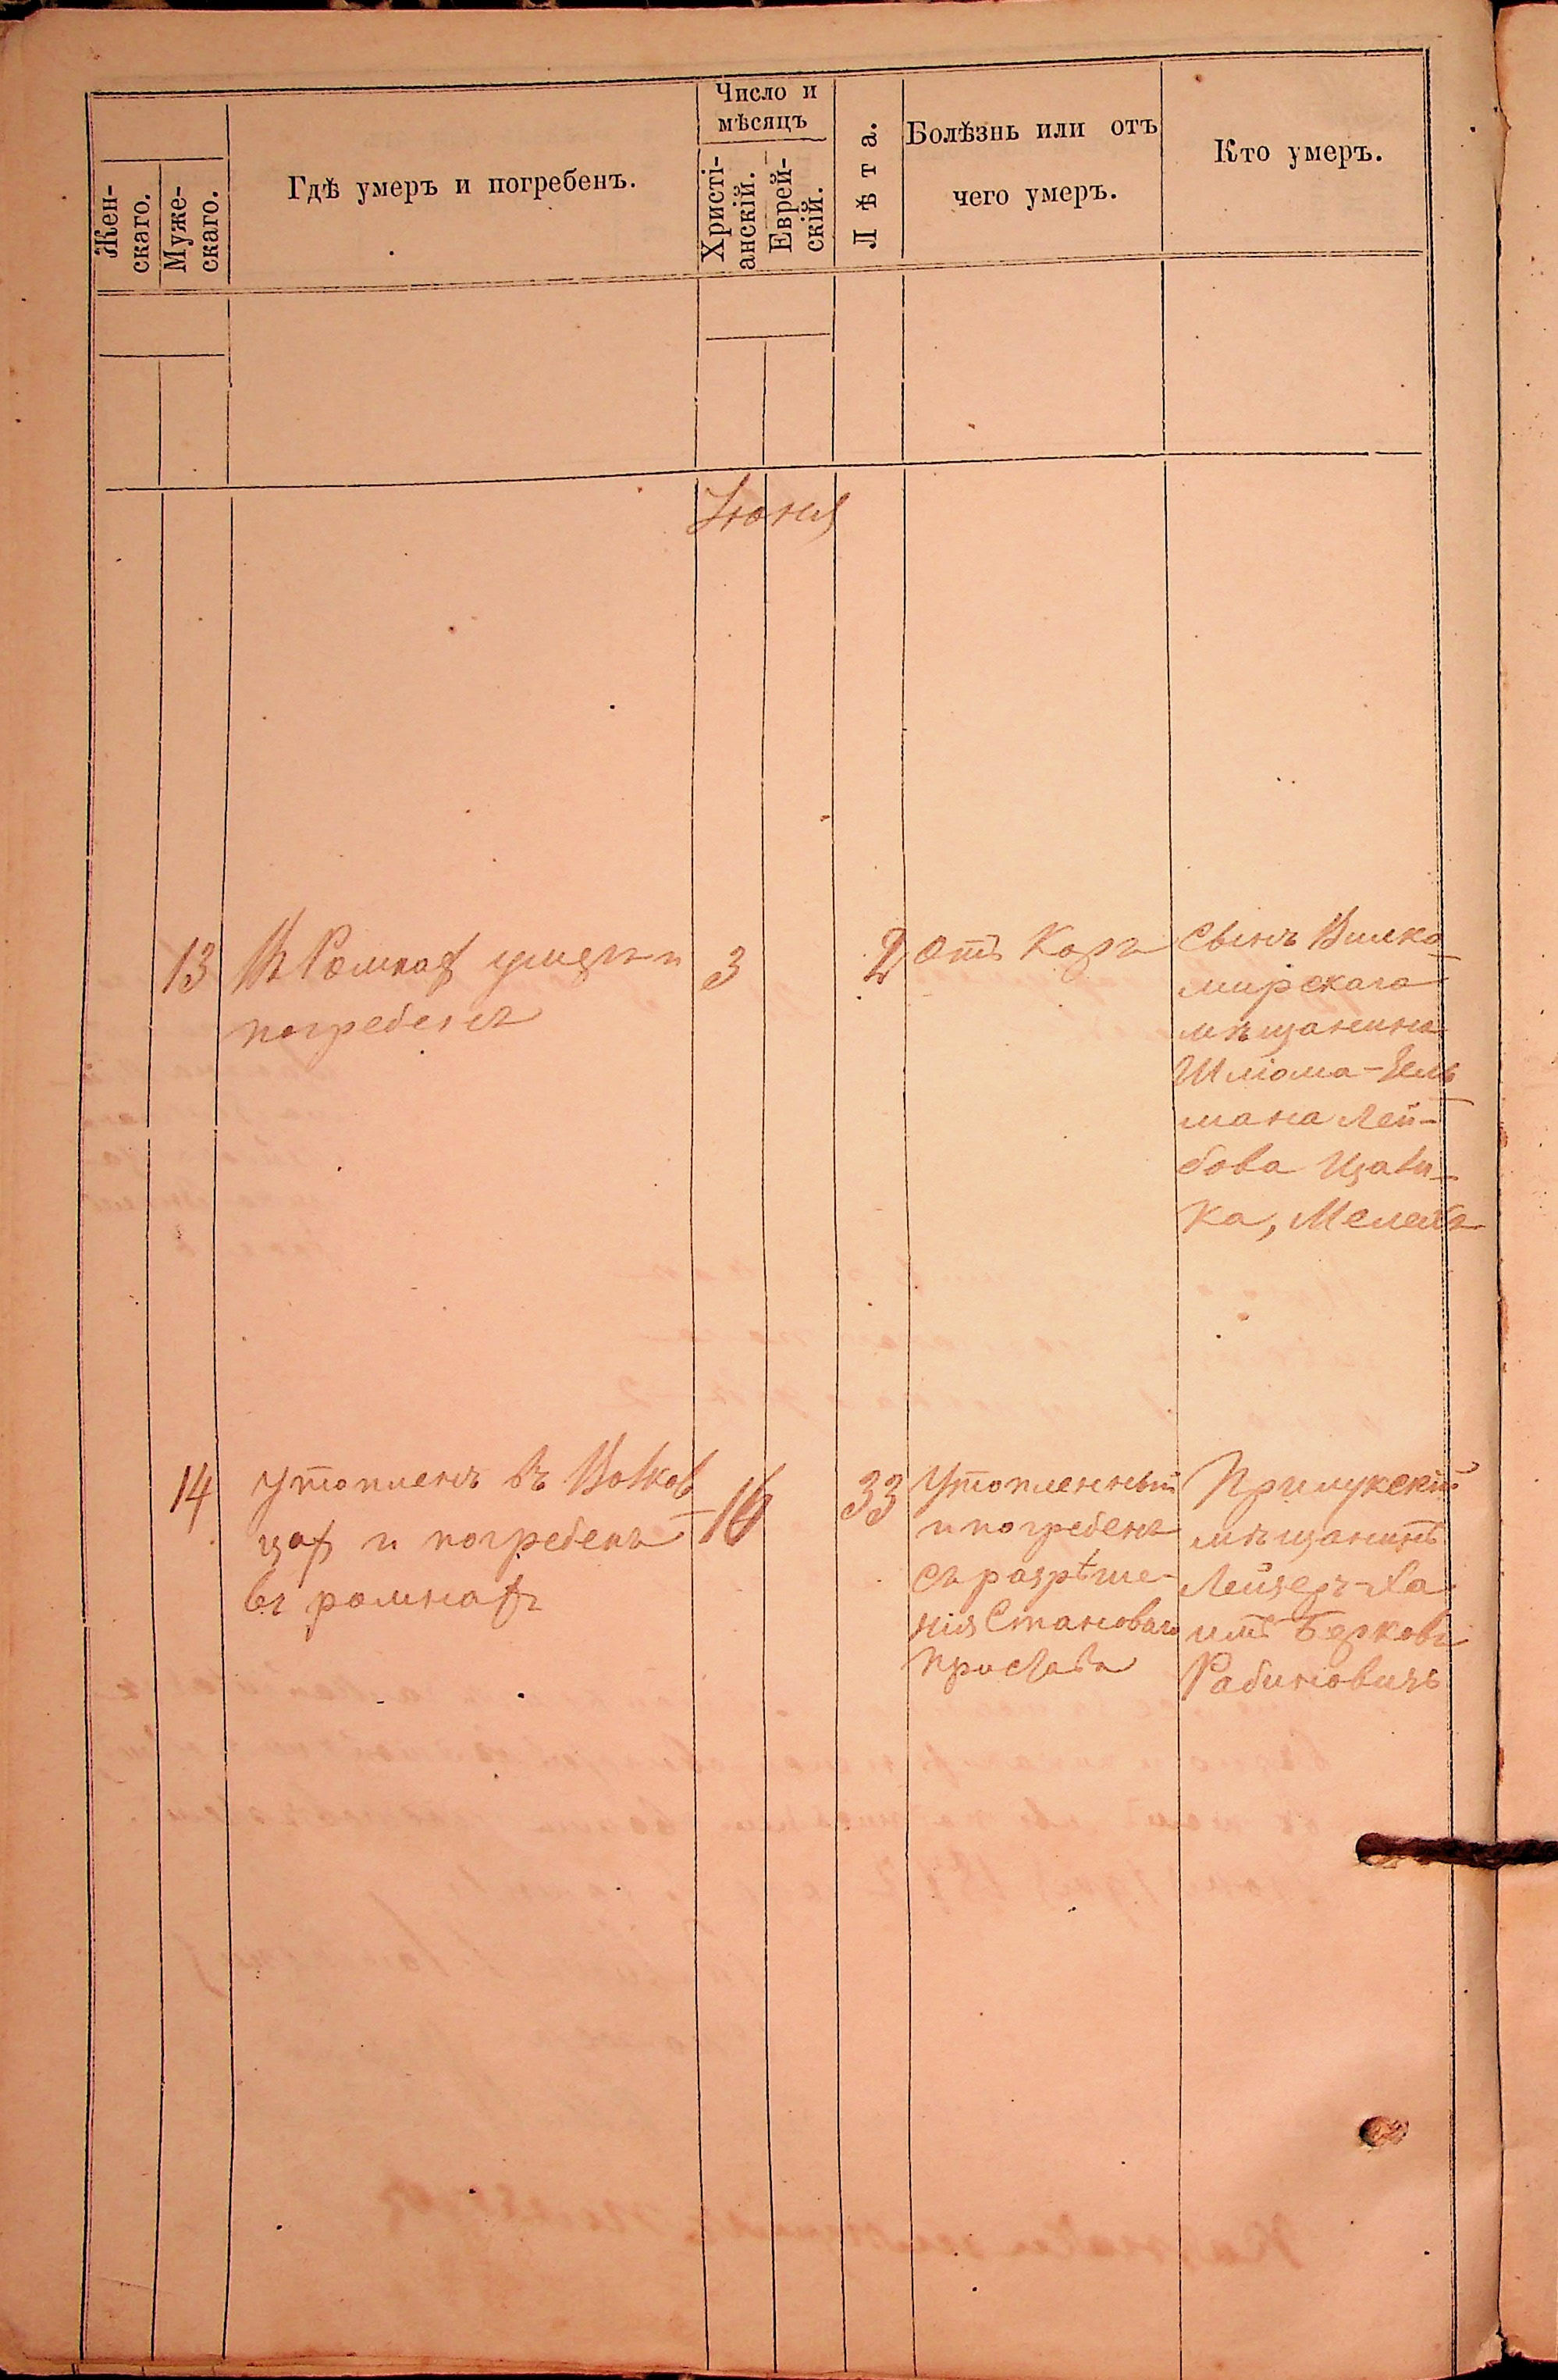 Жен-
скаго.
Муже-
скаго.
Гдѣ умеръ и погребенъ.
Число и
мѣсяцъ
Христі-
анскій.
Еврей-
скій.
Лѣта.
Болѣзнь или отъ
чего умеръ.
Кто умеръ.
Іюня
13
Въ Ромнахъ умеръ и
погребенъ
3
2
Отъ Кори
Сынъ Вилко-
мирскаго
мѣщанина
Шліома-Зель
мана Лей-
бова
ка,
14
Утопленъ въ Волков
цахъ и погребенъ
въ ромнахъ
16
33
Утопленный
и погребенъ
съ разрѣше-
нія Становаго
пристава
Прилукскій
мѣщанинъ
Лейзеръ-Ха
имъ Берковъ
Рабиновичъ